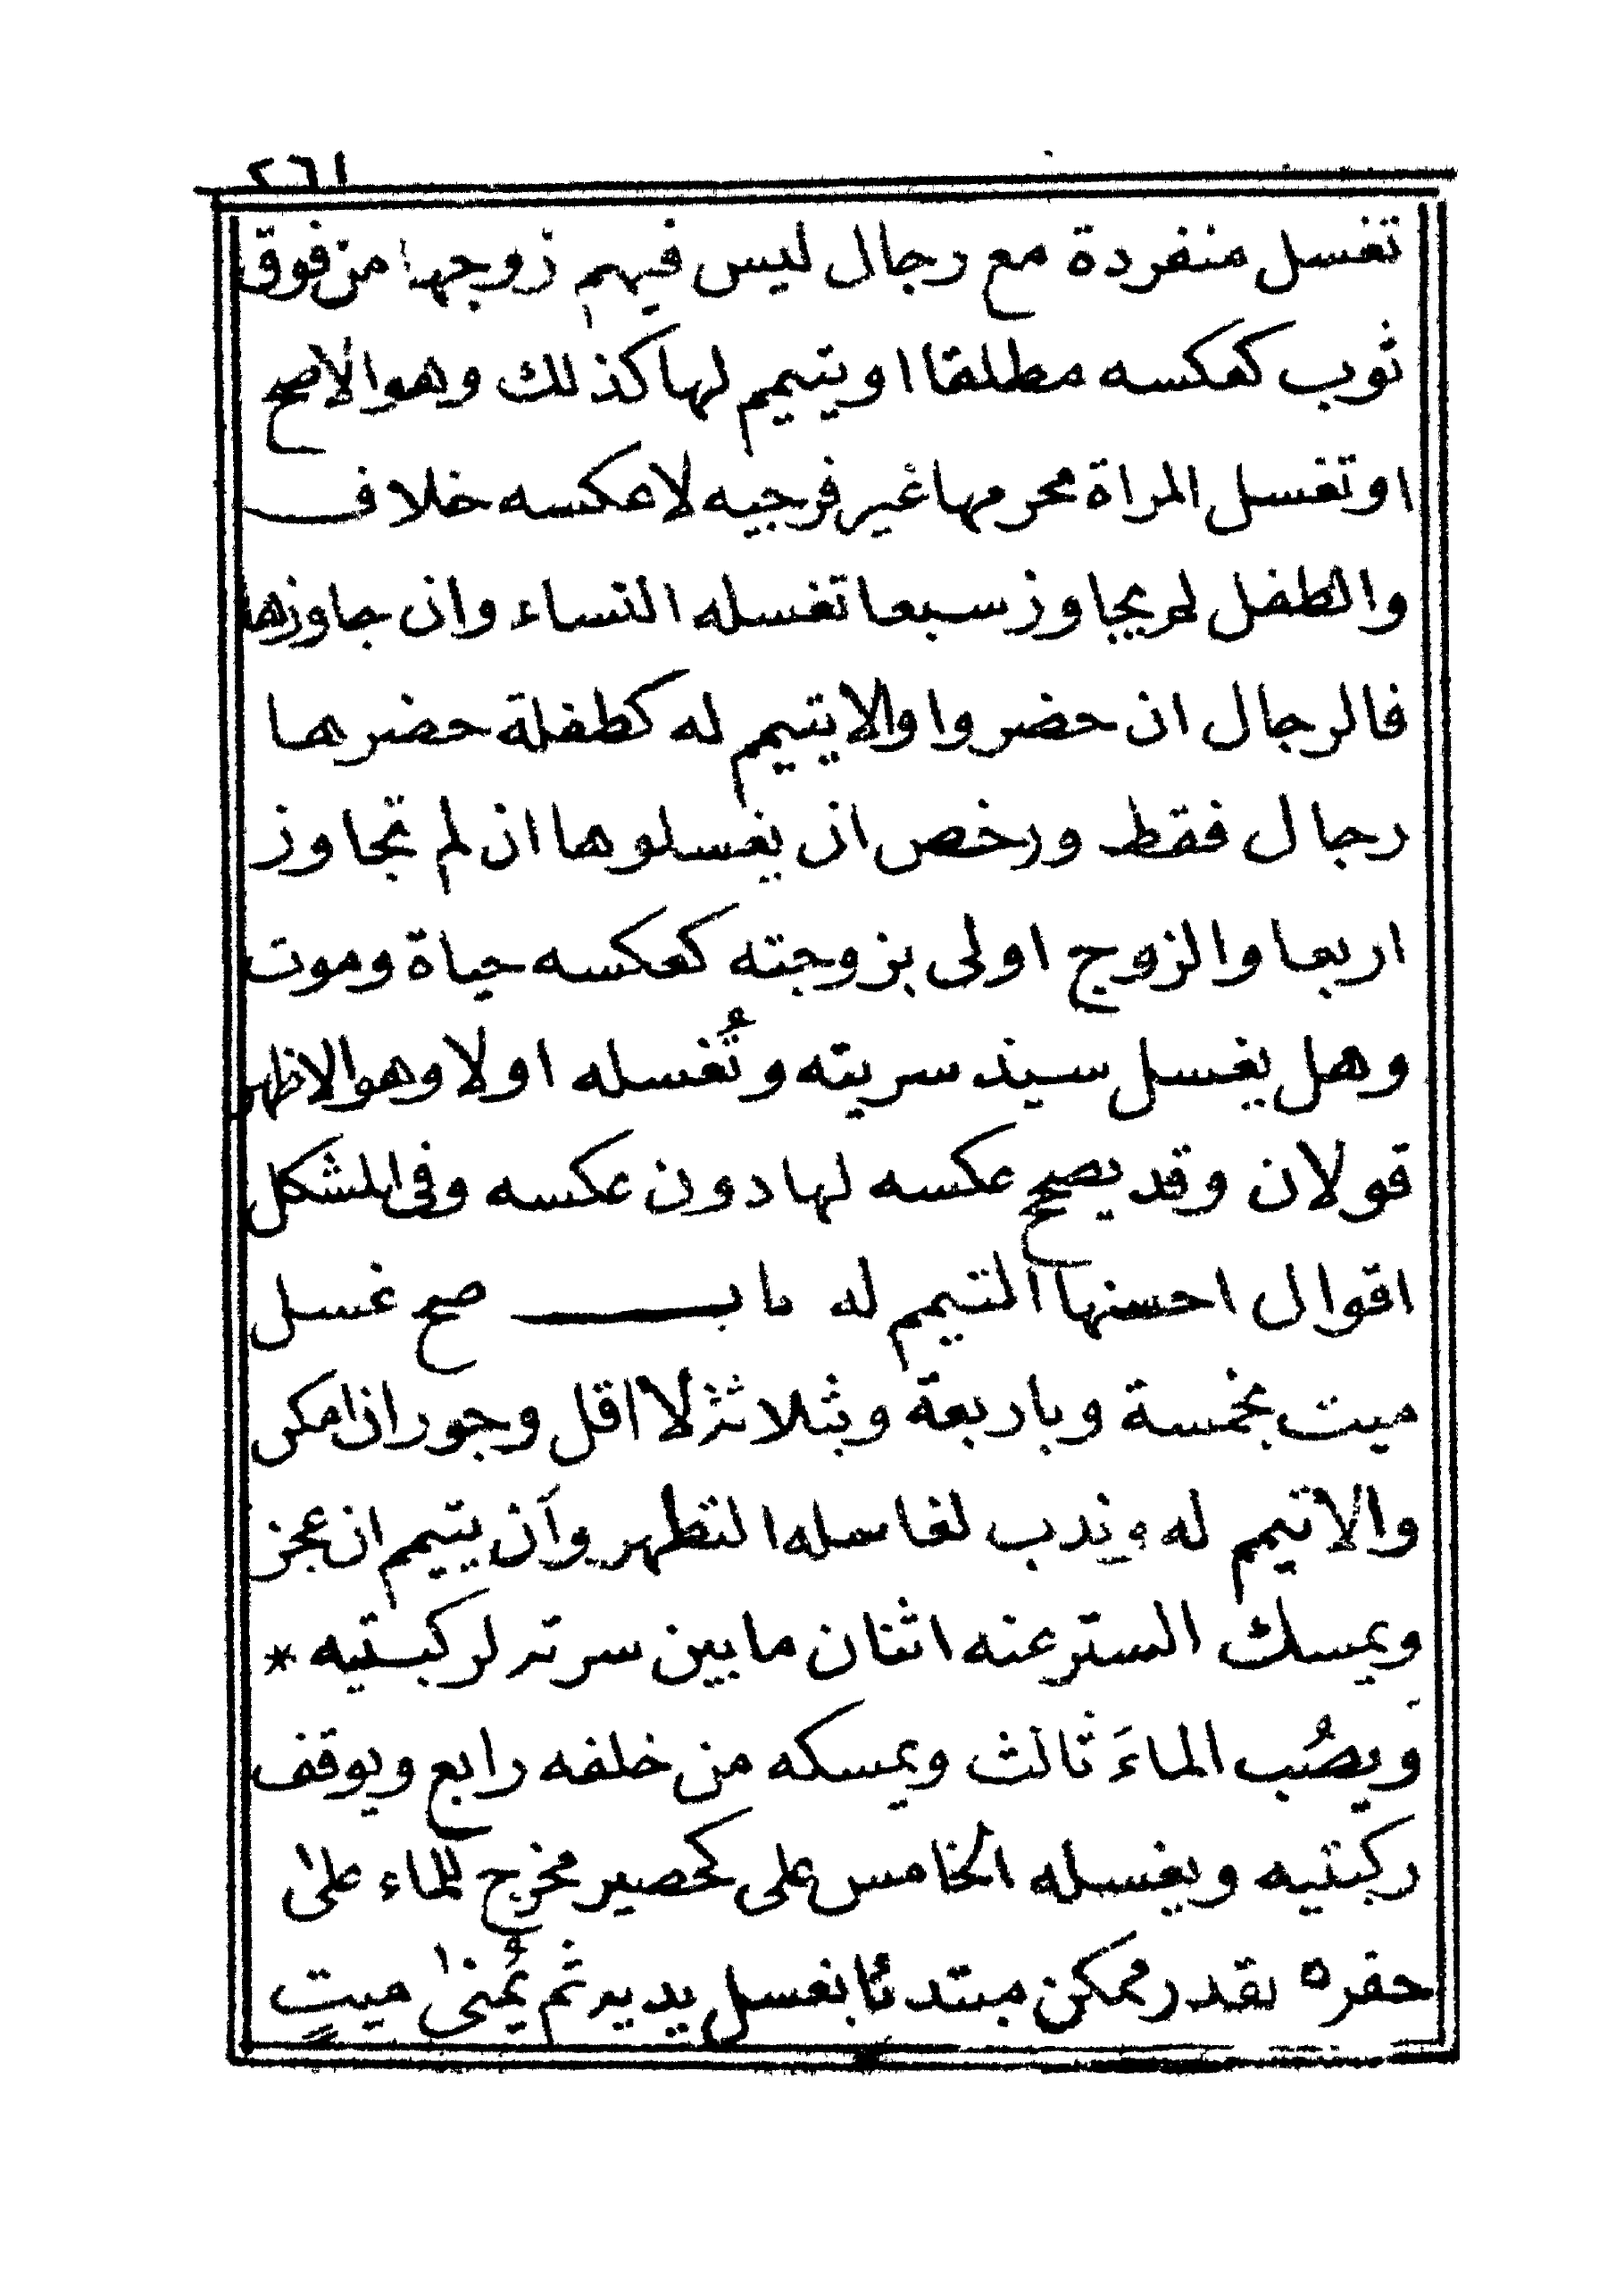 ٢٦١
تغسل منفردة مع رجال ليس فيهم زوجها من فوق
ثوب كعكسه مطلقا او يتيمم لها كذلك وهو الاصح
او تغسل المراة محرمها غير فرجيه لا عكسه خلاف
والطفل لم يجاوز سبعا تغسله النساء وان جاوزها
فالرجال ان حضروا والا يتيمم له كطفلة حضرها
رجال فقط ورخص ان يغسلوها ان لم تجاوز
اربعا والزوج اولى بزوجته كعكسه حياة وموت
وهل يغسل سيد سريته وتُغسله او لا وهو الاظهر
قولان وقد يصح عكسه لها دون عكسه وفي المشكل
اقوال احسنها التيمم له باب صح غسل
ميت بخمسة وباربعة وبثلاثة لا اقل وجور ان امكن
والا تيمم له وندب لغاسله التطهر وأن يتيمم ان عجز
ويمسك الستر عنه اثنان ما بين سرته لركبتيه *
ويصُب الماءَ ثالث ويمسكه من خلفه رابع ويوقف
ركبتيه ويغسله الخامس على كحصير مخرج للماء على
حفرة بقدر ممكن مبتدئا بغسل يديه ثم يُمنى ميتٍ